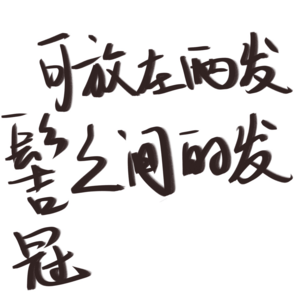 可放在两发
髻之间的发
冠